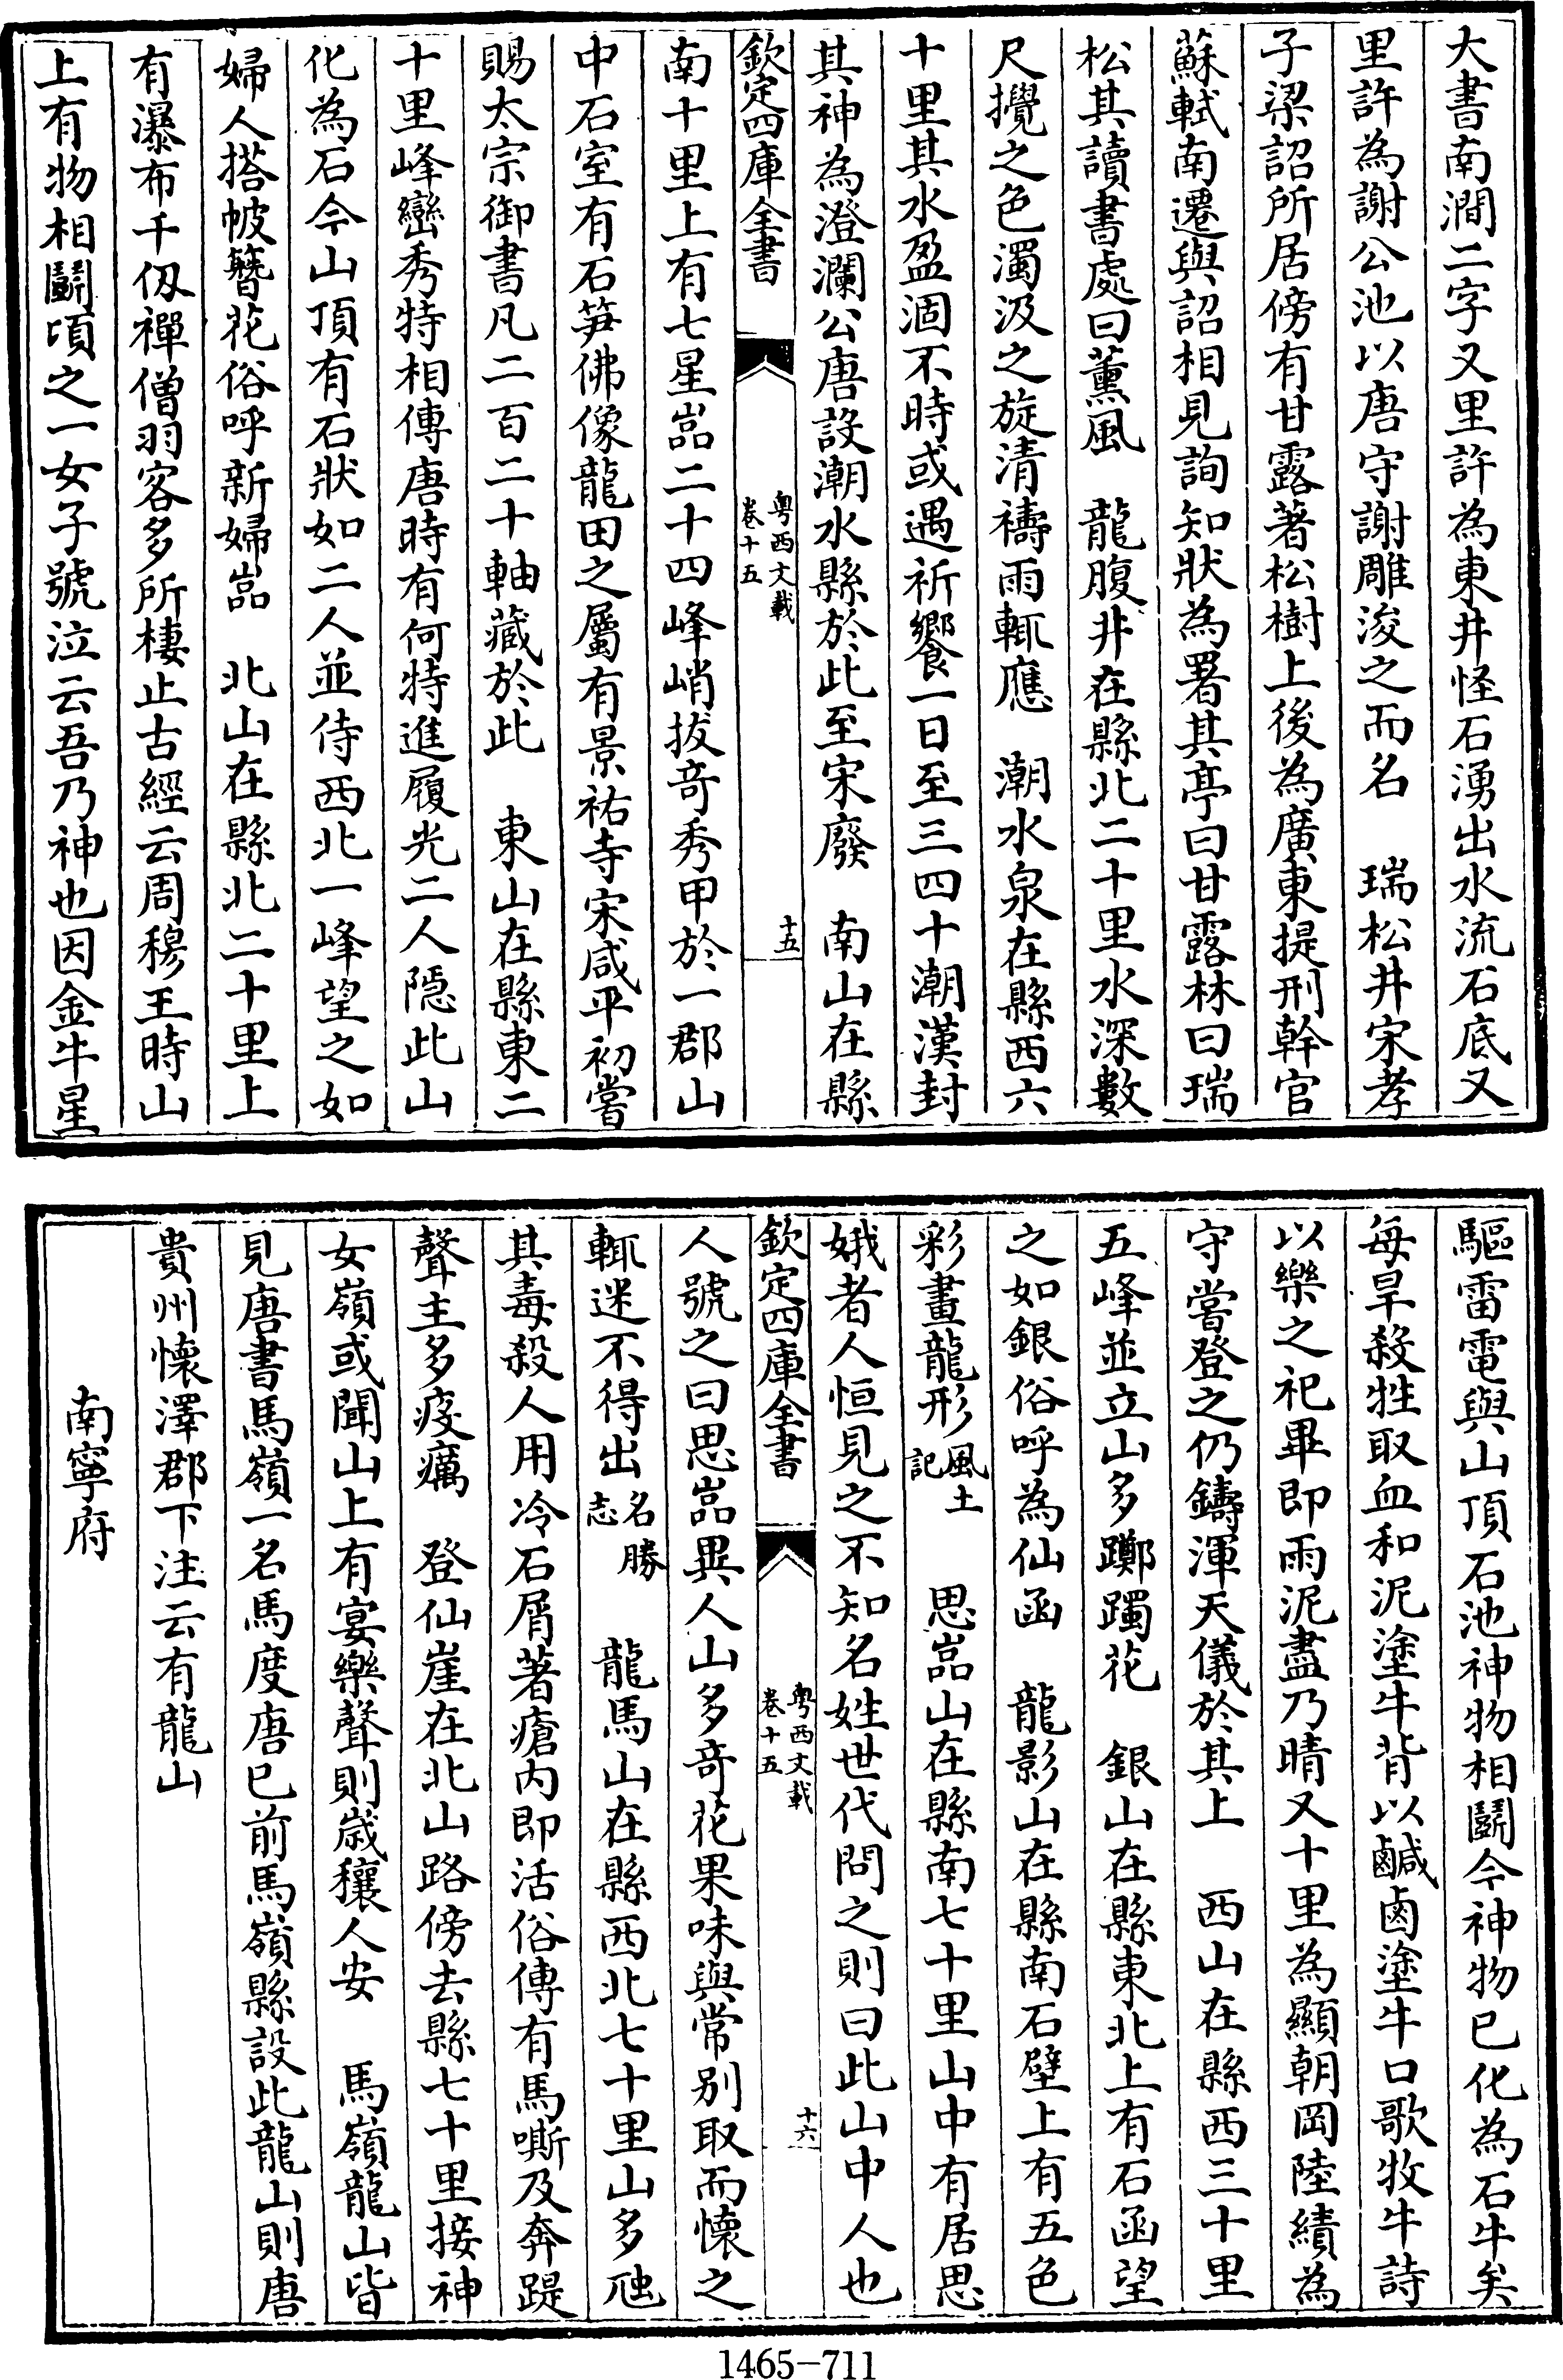 大書南澗二字又里許為東井怪石湧出水流石底又
里許為謝公池以唐守謝雕浚之而名　瑞松井宋孝
子梁詔所居傍有甘露著松樹上後為廣東提刑幹官
蘇軾南遷與詔相見詢知狀為署其亭曰甘露林曰瑞
松其讀書處曰薰風　龍腹井在縣北二十里水深數
尺攪之色濁汲之旋清禱雨輒應　潮水泉在縣西六
十里其水盈涸不時或遇祈饗一日至三四十潮漢封
其神為澄瀾公唐設潮水縣於此至宋廢　南山在縣
欽定四庫全書
粤西文載
卷十五
十五
南十里上有七星嵓二十四峰峭拔竒秀甲於一郡山
中石室有石笋佛像龍田之屬有景祐寺宋咸平初嘗
賜太宗御書凡二百二十軸藏於此　東山在縣東二
十里峰巒秀特相傳唐時有何特進履光二人隱此山
化為石今山頂有石狀如二人並侍西北一峰望之如
婦人搭帔簪花俗呼新婦嵓　北山在縣北二十里上
有瀑布千仭禪僧羽客多所棲止古經云周穆王時山
上有物相鬭頃之一女子號泣云吾乃神也因金牛星
驅雷電與山頂石池神物相鬭今神物已化為石牛矣
每旱殺牲取血和泥塗牛背以鹹鹵塗牛口歌牧牛詩
以樂之祀畢即雨泥盡乃晴又十里為顯朝岡陸績為
守嘗登之仍鑄渾天儀於其上　西山在縣西三十里
五峰並立山多躑躅花　銀山在縣東北上有石函望
之如銀俗呼為仙函　龍影山在縣南石壁上有五色
彩畫龍形風土記　思嵓山在縣南七十里山中有居思
娥者人恒見之不知名姓世代問之則曰此山中人也
欽定四庫全書
粤西文載
卷十五
十六
人號之曰思嵓異人山多竒花果味與常别取而懷之
輒迷不得出名勝志　龍馬山在縣西北七十里山多虺
其毒殺人用冷石屑著瘡内即活俗傳有馬嘶及奔踶
聲主多疫癘　登仙崖在北山路傍去縣七十里接神
女嶺或聞山上有宴樂聲則歲穰人安　馬嶺龍山皆
見唐書馬嶺一名馬度唐已前馬嶺縣設此龍山則唐
貴州懷澤郡下注云有龍山
南寧府
1465-711